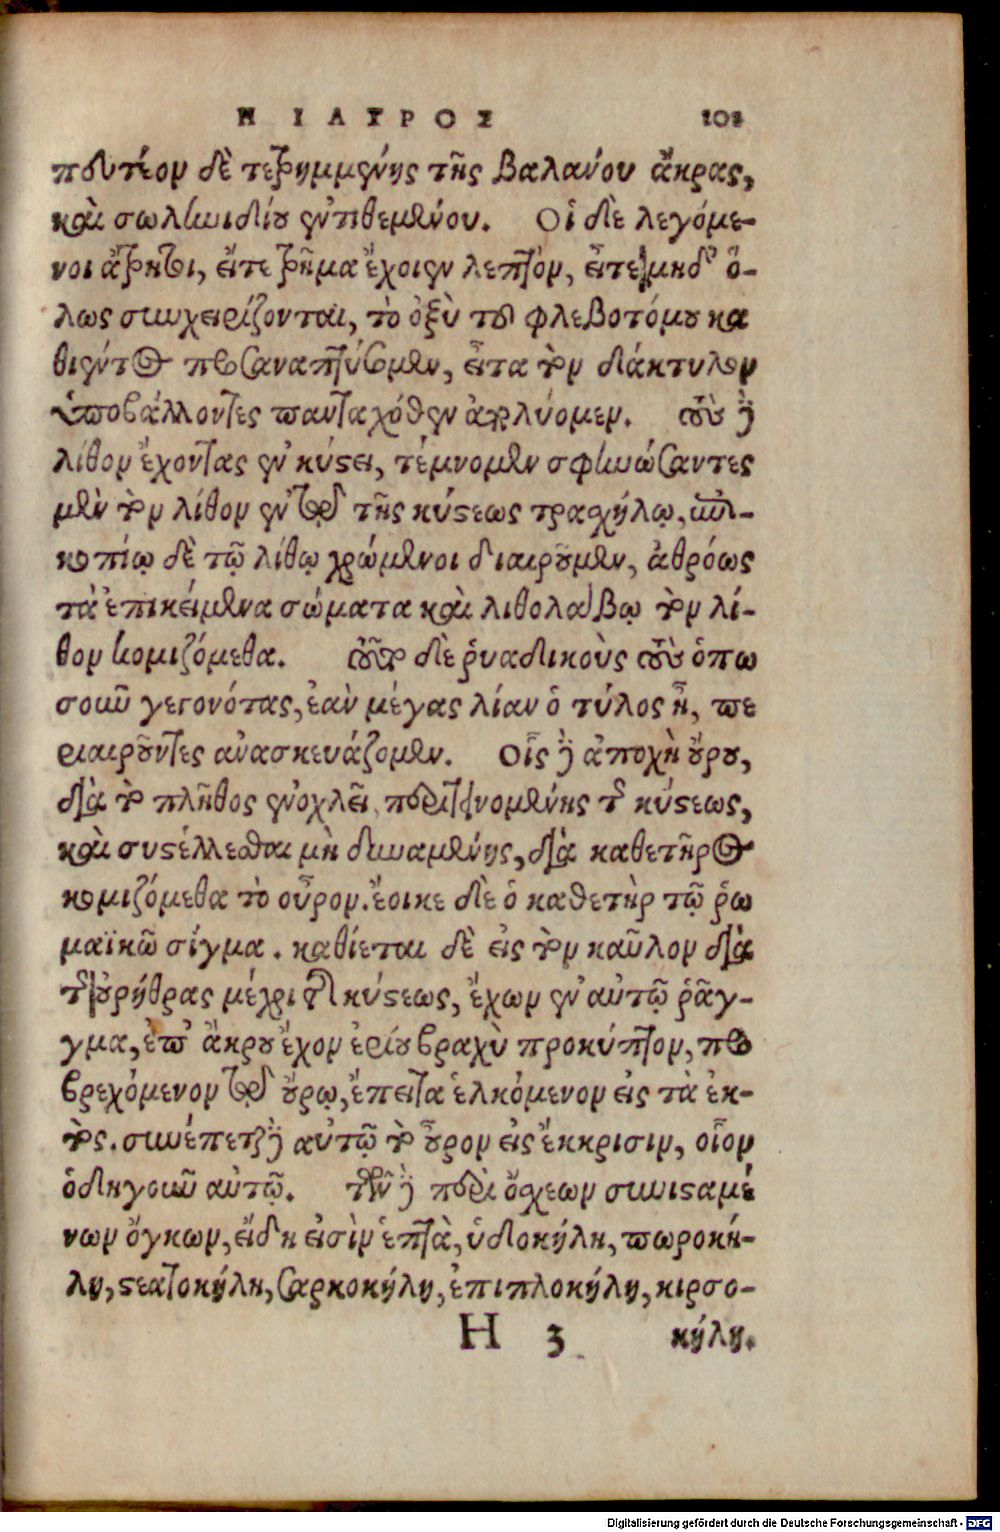 Η ΙΑΤΡΟΣ 101
που τέον δὲ τετρημμένης τῆς βαλάνου ἄκρας,
καὶ σωληνιδίου ἐντιθεμένου. Οἱ δὲ λεγόμε-
νοι ἄτρητοι, εἴτε τρῆμα ἔχοιεν λεπτὸν, εἴτε μηδ' ὅ-
λως συγχειρίζονται, τὸ ὀξὺ τοῦ φλεβοτόμου κα
θιέντες προσαναπτύσσομεν, εἶτα τὸν δάκτυλον
ὑποβάλλοντες πανταχόθεν ἀπολύομεν. τοὺς δὲ
λίθον ἔχοντας ἐν κύστει, τέμνομεν σφηνώσαντες
μὲν τὸν λίθον ἐν τῷ τῆς κύστεως τραχήλῳ,
κοπίῳ δὲ τῷ λίθῳ χρώμενοι διαιροῦμεν, ἀθρόως
τὰ ἐπικείμενα σώματα καὶ λιθολάβῳ τὸν λί-
θον κομιζόμεθα. τοὺς δὲ ῥυαδικοὺς τοὺς ὁπω
σοῦν γεγονότας, ἐὰν μέγας λίαν ὁ τύλος ᾖ, πε
ριαιροῦντες ἀνασκευάζομεν. Οἷς δὲ ἀποχὴ οὔρου,
διὰ τὸ πλῆθος ἐνοχλεῖ, περιτεινομένης τῆς κύστεως,
καὶ συστέλλεσθαι μὴ δυναμένης, διὰ καθετῆρος
κομιζόμεθα τὸ οὖρον. ἔοικε δὲ ὁ καθετὴρ τῷ ῥω
μαϊκῷ σίγμα. καθίεται δὲ εἰς τὸν καῦλον διὰ
τῆς οὐρήθρας μέχρι τῆς κύστεως, ἔχων ἐν αὑτῷ ῥᾶγ-
γμα, ἐπ' ἄκρου ἔχον ἐρίου βραχὺ προκύπτον, προ
βρεχόμενον τῷ οὔρῳ, ἔπειτα ἑλκόμενον εἰς τὰ ἐκ-
τὸς. συνέπεται δὲ αὐτῷ τὸ οὖρον εἰς ἔκκρισιν, οἷον
ὁδηγοῦν αὐτῷ. τῶν δὲ περὶ ὄσχεων συνισταμέ
νων ὄγκων, εἴδη εἰσὶν ἑπτὰ, ὑδροκήλη, πωροκή-
λη, στεατοκήλη, σαρκοκήλη, ἐπιπλοκήλη, κιρσο-
H 3 κήλη.
Digitalisierung gefördert durch die Deutsche Forschungsgemeinschaft - DFG